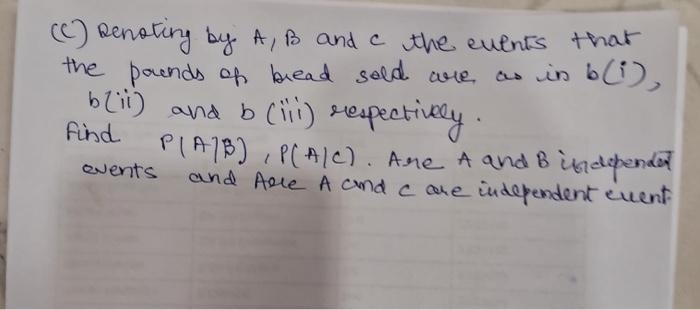 (C) Denoting by A, B and C the events that
the pounds of bread sold are as in b(i),
b(ii) and b (iii) respectively.
Find P(A|B), P(A|C). Are A and B independent
events and Are A and C are independent event